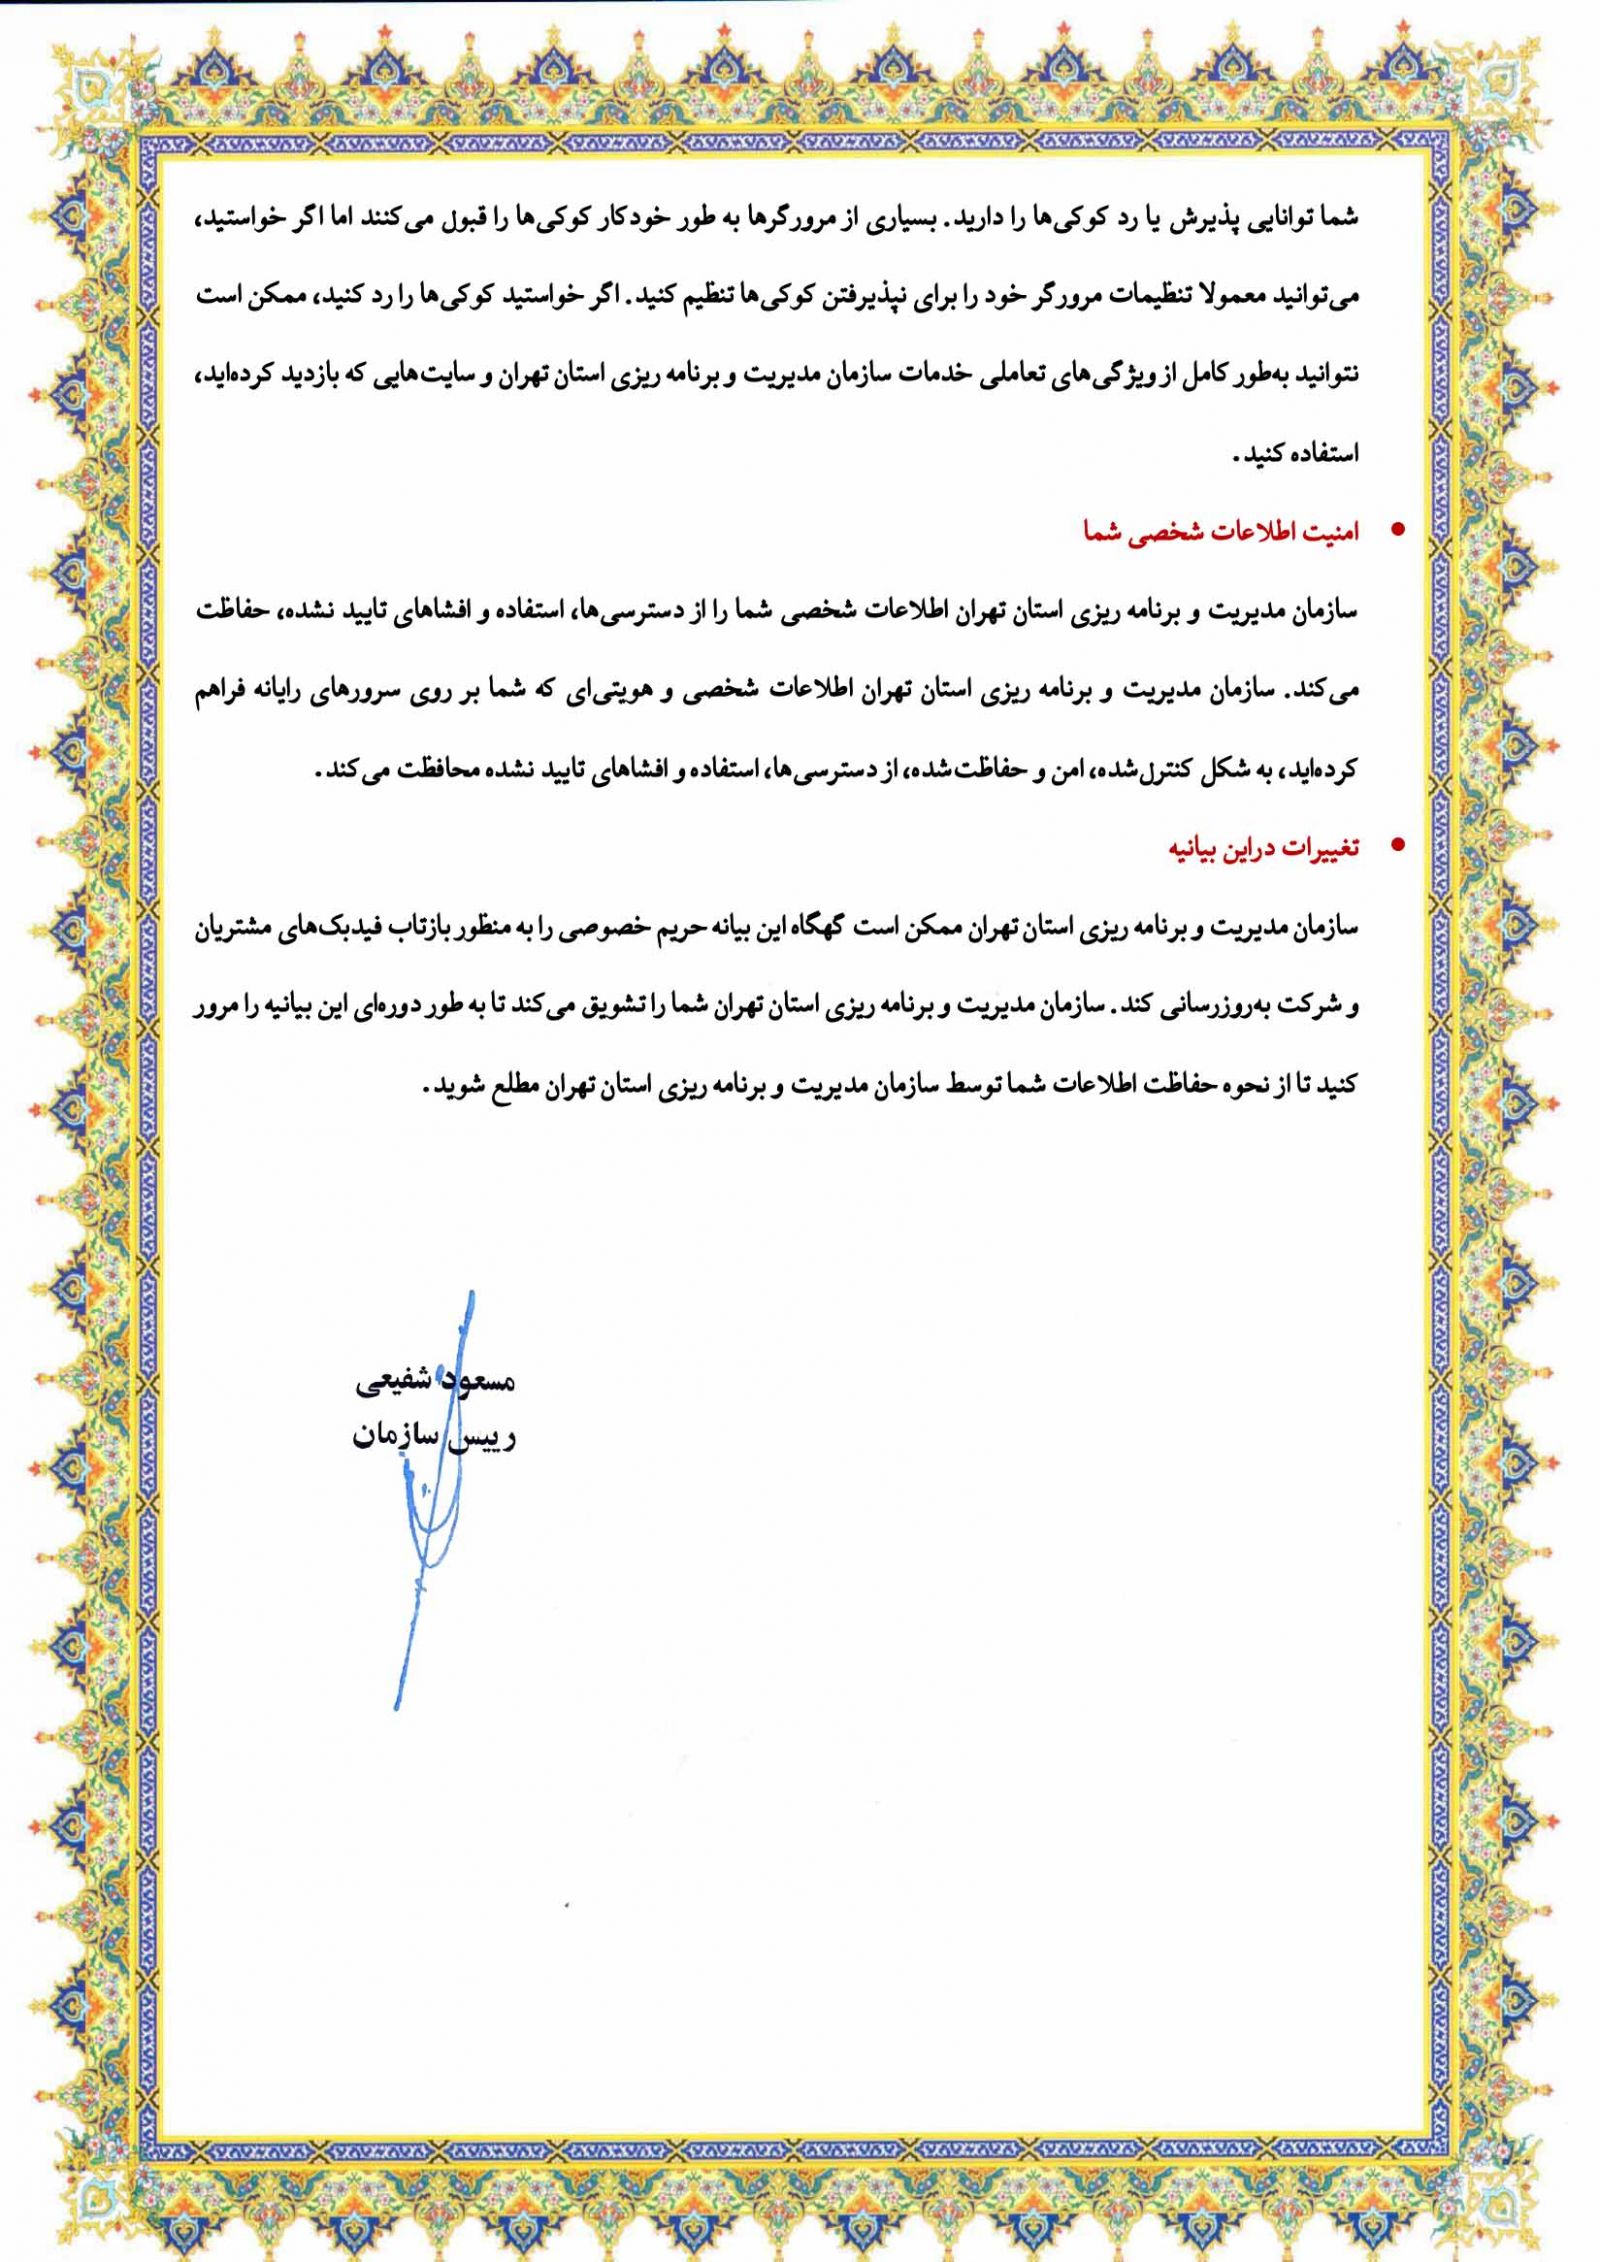 شما توانایی پذیرش یا رد کوکی‌ها را دارید. بسیاری از مرورگرها به طور خودکار کوکی‌ها را قبول می‌کنند اما اگر خواستید،
می‌توانید معمولا تنظیمات مرورگر خود را برای نپذیرفتن کوکی‌ها تنظیم کنید. اگر خواستید کوکی‌ها را رد کنید، ممکن است
نتوانید به‌طور کامل از ویژگی‌های تعاملی خدمات سازمان مدیریت و برنامه ریزی استان تهران و سایت‌هایی که بازدید کرده‌اید،
استفاده کنید.
• امنیت اطلاعات شخصی شما
سازمان مدیریت و برنامه ریزی استان تهران اطلاعات شخصی شما را از دسترسی‌ها، استفاده و افشاهای تایید نشده، حفاظت
می‌کند. سازمان مدیریت و برنامه ریزی استان تهران اطلاعات شخصی و هویتی‌ای که شما بر روی سرورهای رایانه فراهم
کرده‌اید، به شکل کنترل‌شده، امن و حفاظت‌شده، از دسترسی‌ها، استفاده و افشاهای تایید نشده محافظت می‌کند.
• تغییرات دراین بیانیه
سازمان مدیریت و برنامه ریزی استان تهران ممکن است گهگاه این بیانه حریم خصوصی را به منظور بازتاب فیدبک‌های مشتریان
و شرکت به‌روزرسانی کند. سازمان مدیریت و برنامه ریزی استان تهران شما را تشویق می‌کند تا به طور دوره‌ای این بیانیه را مرور
کنید تا از نحوه حفاظت اطلاعات شما توسط سازمان مدیریت و برنامه ریزی استان تهران مطلع شوید.
مسعود شفیعی
رییس سازمان